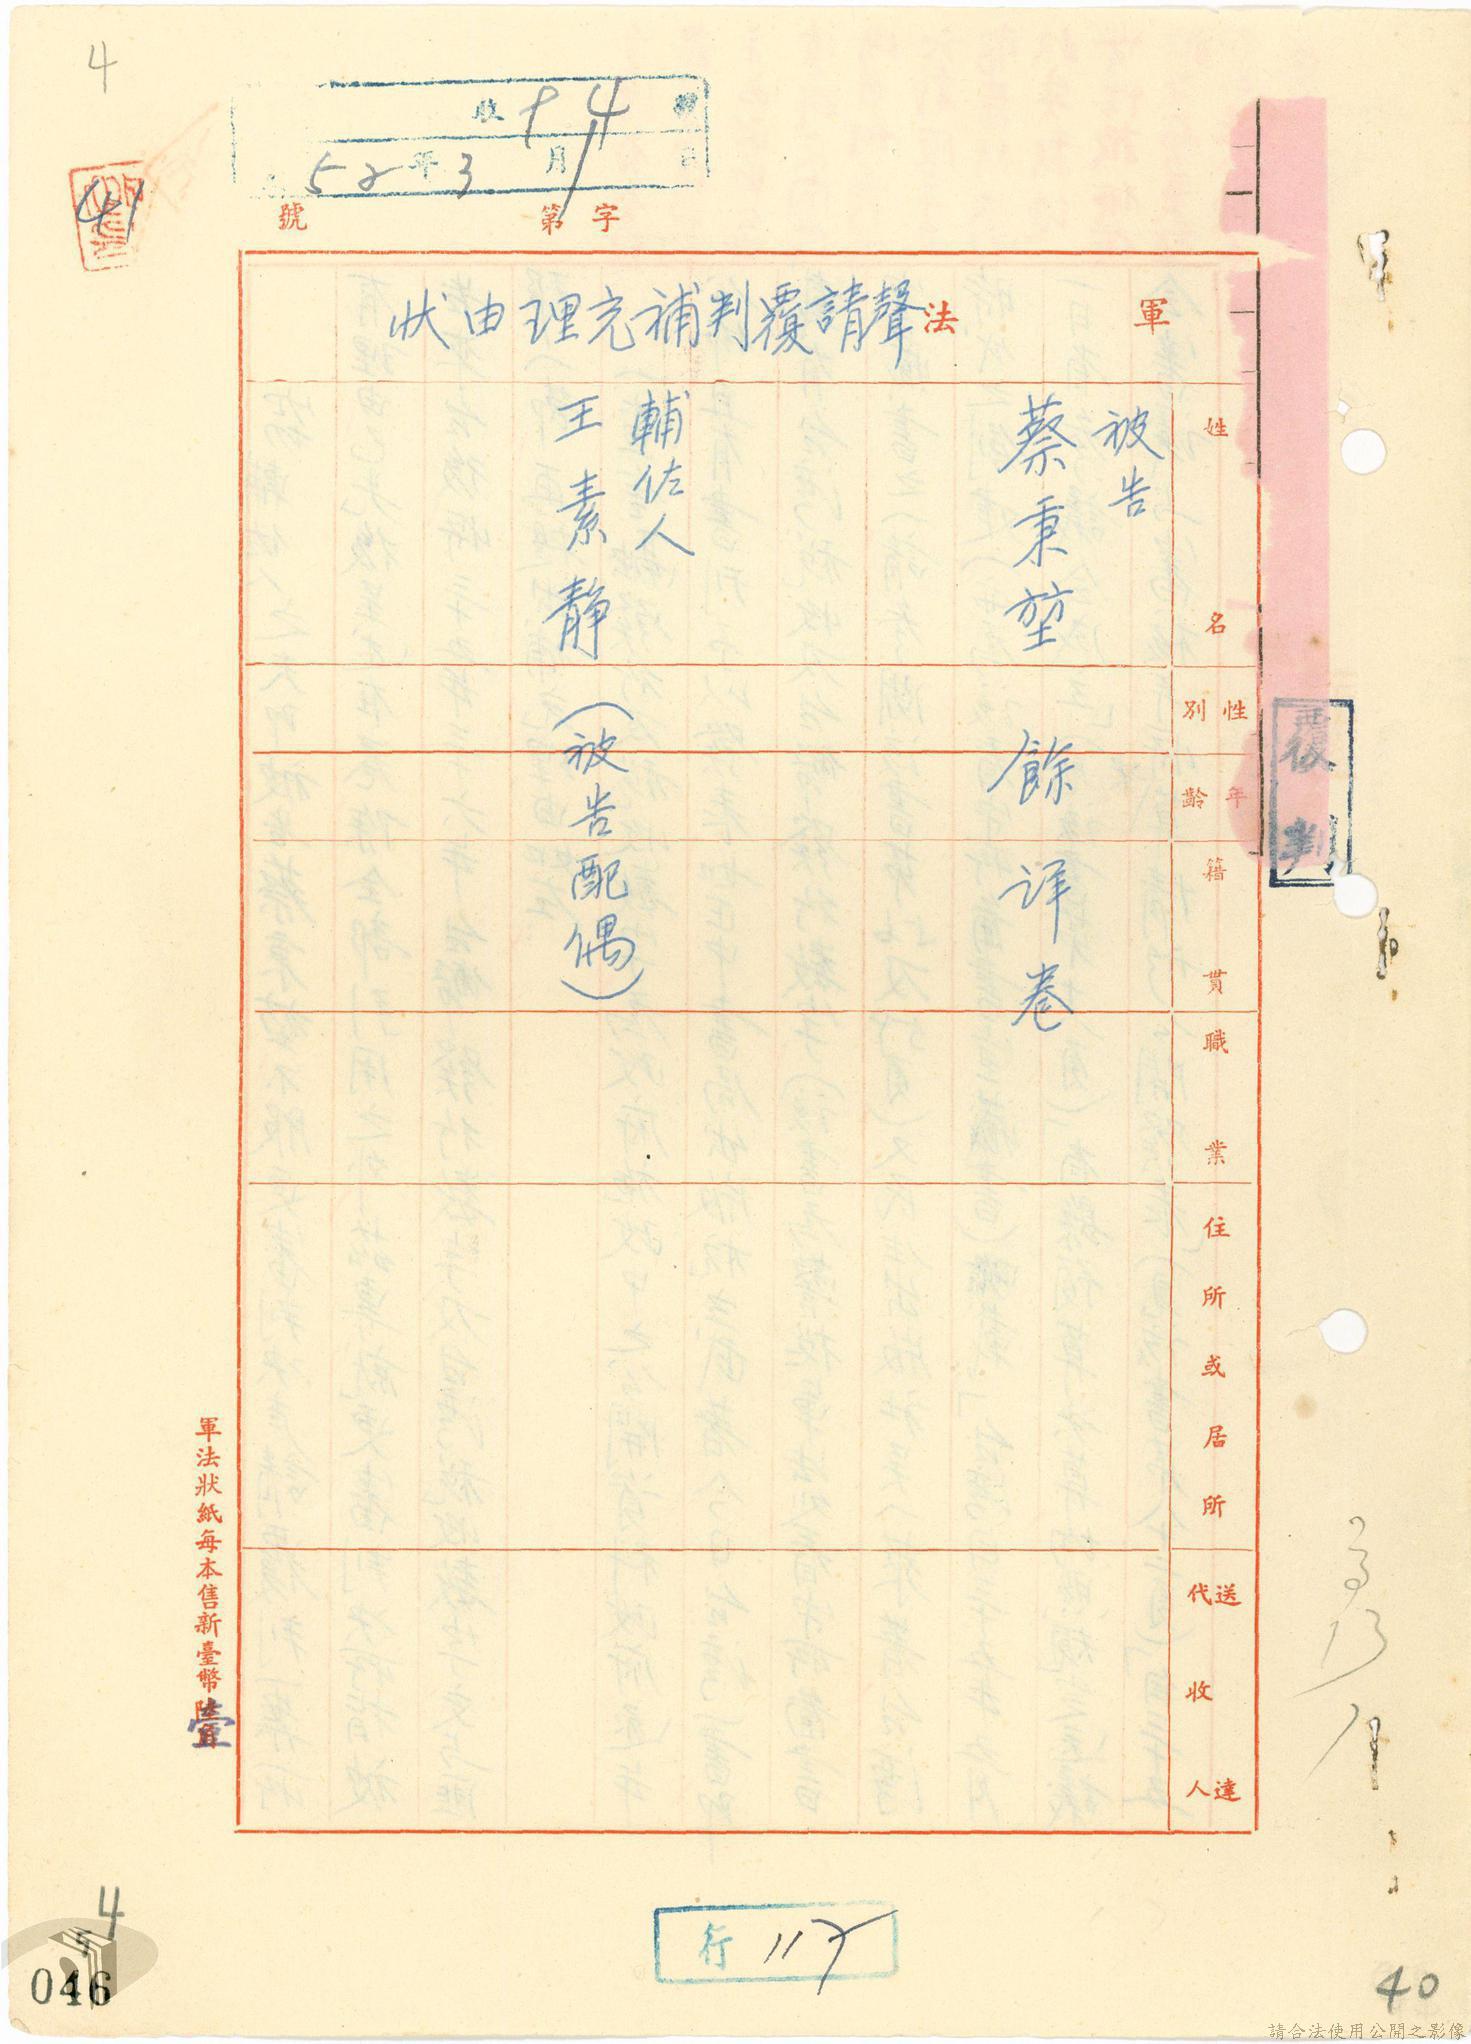 4
收
52年3月14日
41
字第號
軍法聲請覆判補充理由狀
姓名
性別
年齡
籍貫
職業
住所或居所
送達代收人
被告
蔡秉堃 餘詳卷
輔佐人
王素靜（被告配偶）
軍法狀紙每本售新臺幣壹
覆判
行 117
4
5
046
40
請合法使用公開之影像